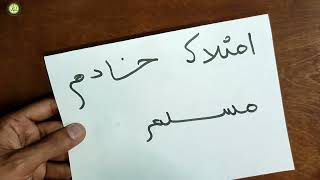 امتلاك خادم
مسلم